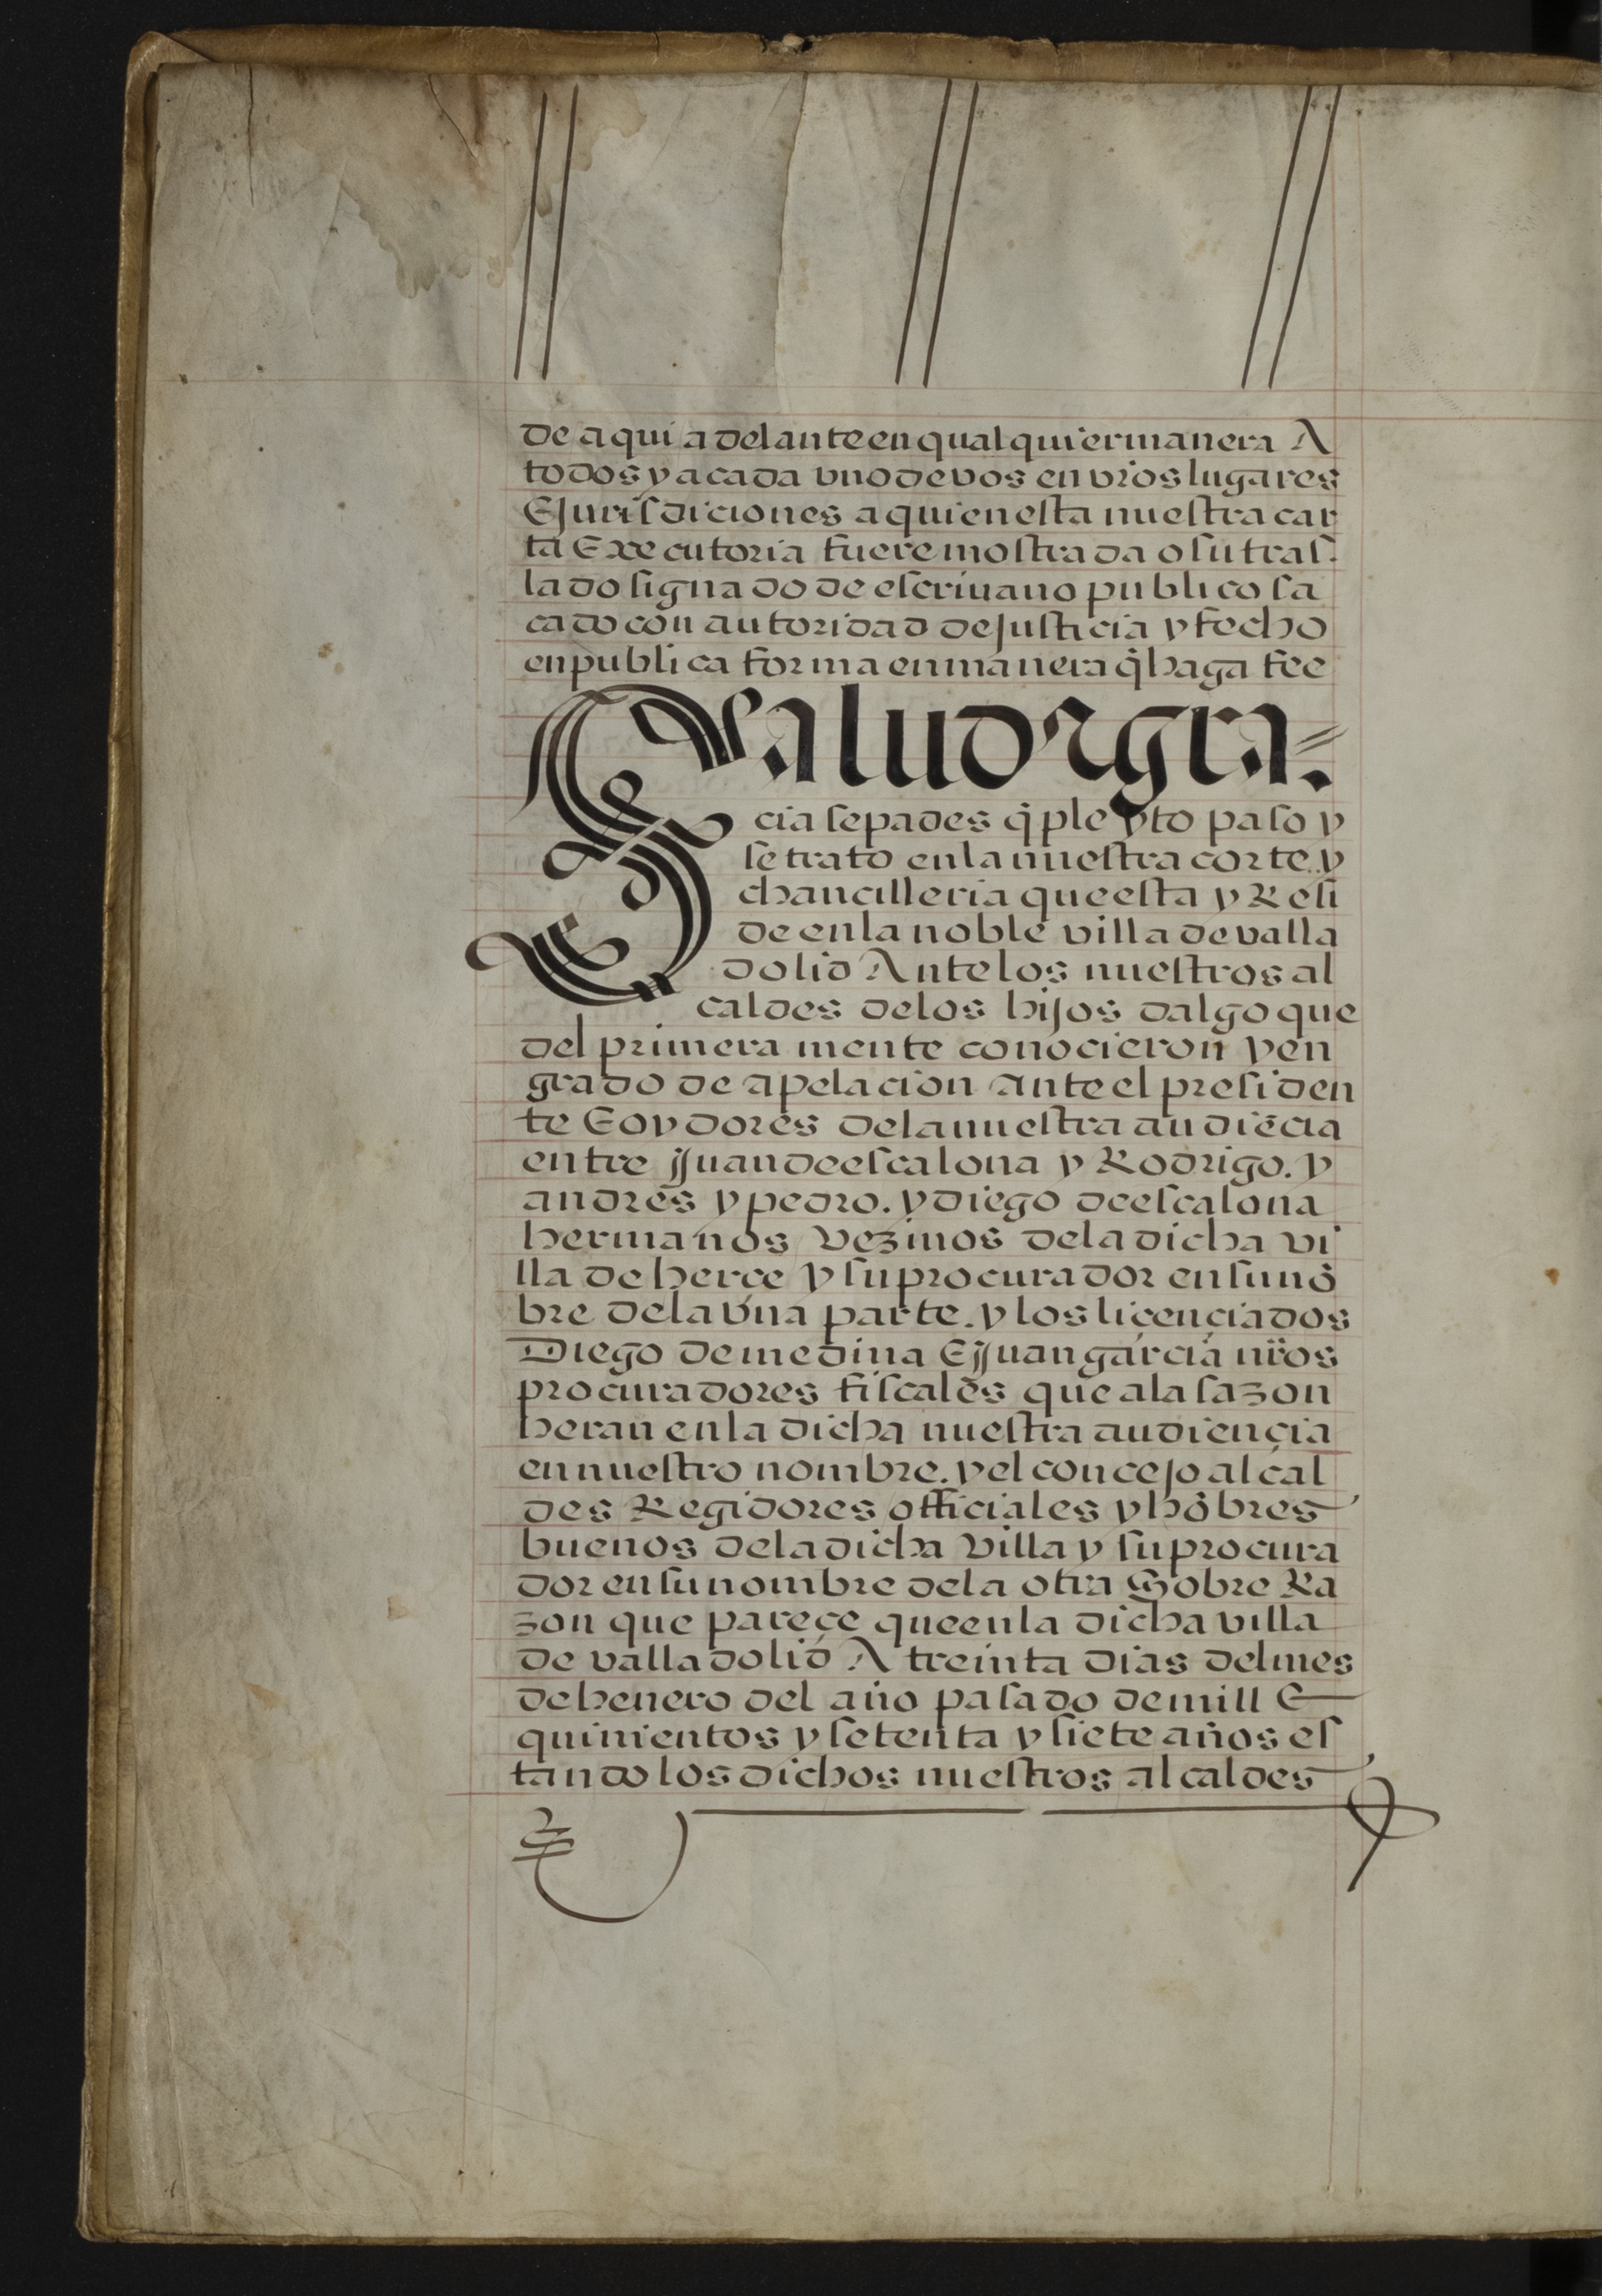 de aqui adelante en qualquier manera A
todos y a cada vno de vos en vr̃os lugares
E Jurisdiciones a quien esta nuestra car
ta Executoria fuere mostrada o su tras.
lado signado de escriuano publico sa
cado con autoridad de Justicia y fecho
en publica forma en manera q̃ haga fee
Salud e gra.
cia sepades q̃ pleyto paso y
se trato en la nuestra corte y
chancilleria que esta y Resi
de en la noble villa de valla
dolid Ante los nuestros al
caldes de los hijos dalgo que
del primera mente conocieron y en
grado de apelacion ante el presiden
te E oydores de la nuestra audiẽcia
entre Juan de escalona y Rodrigo. y
andres y pedro. y diego de escalona
hermanos vezinos de la dicha vi
lla de herçe y su procurador en su nõ
bre de la vna parte. y los liçençiados
Diego de medina E Juan garcia nr̃os
procuradores fiscales que a la sazon
heran en la dicha nuestra audiençia
en nuestro nombre. y el concejo alcal
des Regidores officiales y hõbres
buenos de la dicha villa y su procura
dor en su nombre de la otra Sobre Ra
zon que pareçe que en la dicha villa
de valladolid A treinta dias del mes
de henero del año pasado de mill E
quinientos y setenta y siete años es
tando los dichos nuestros alcaldes